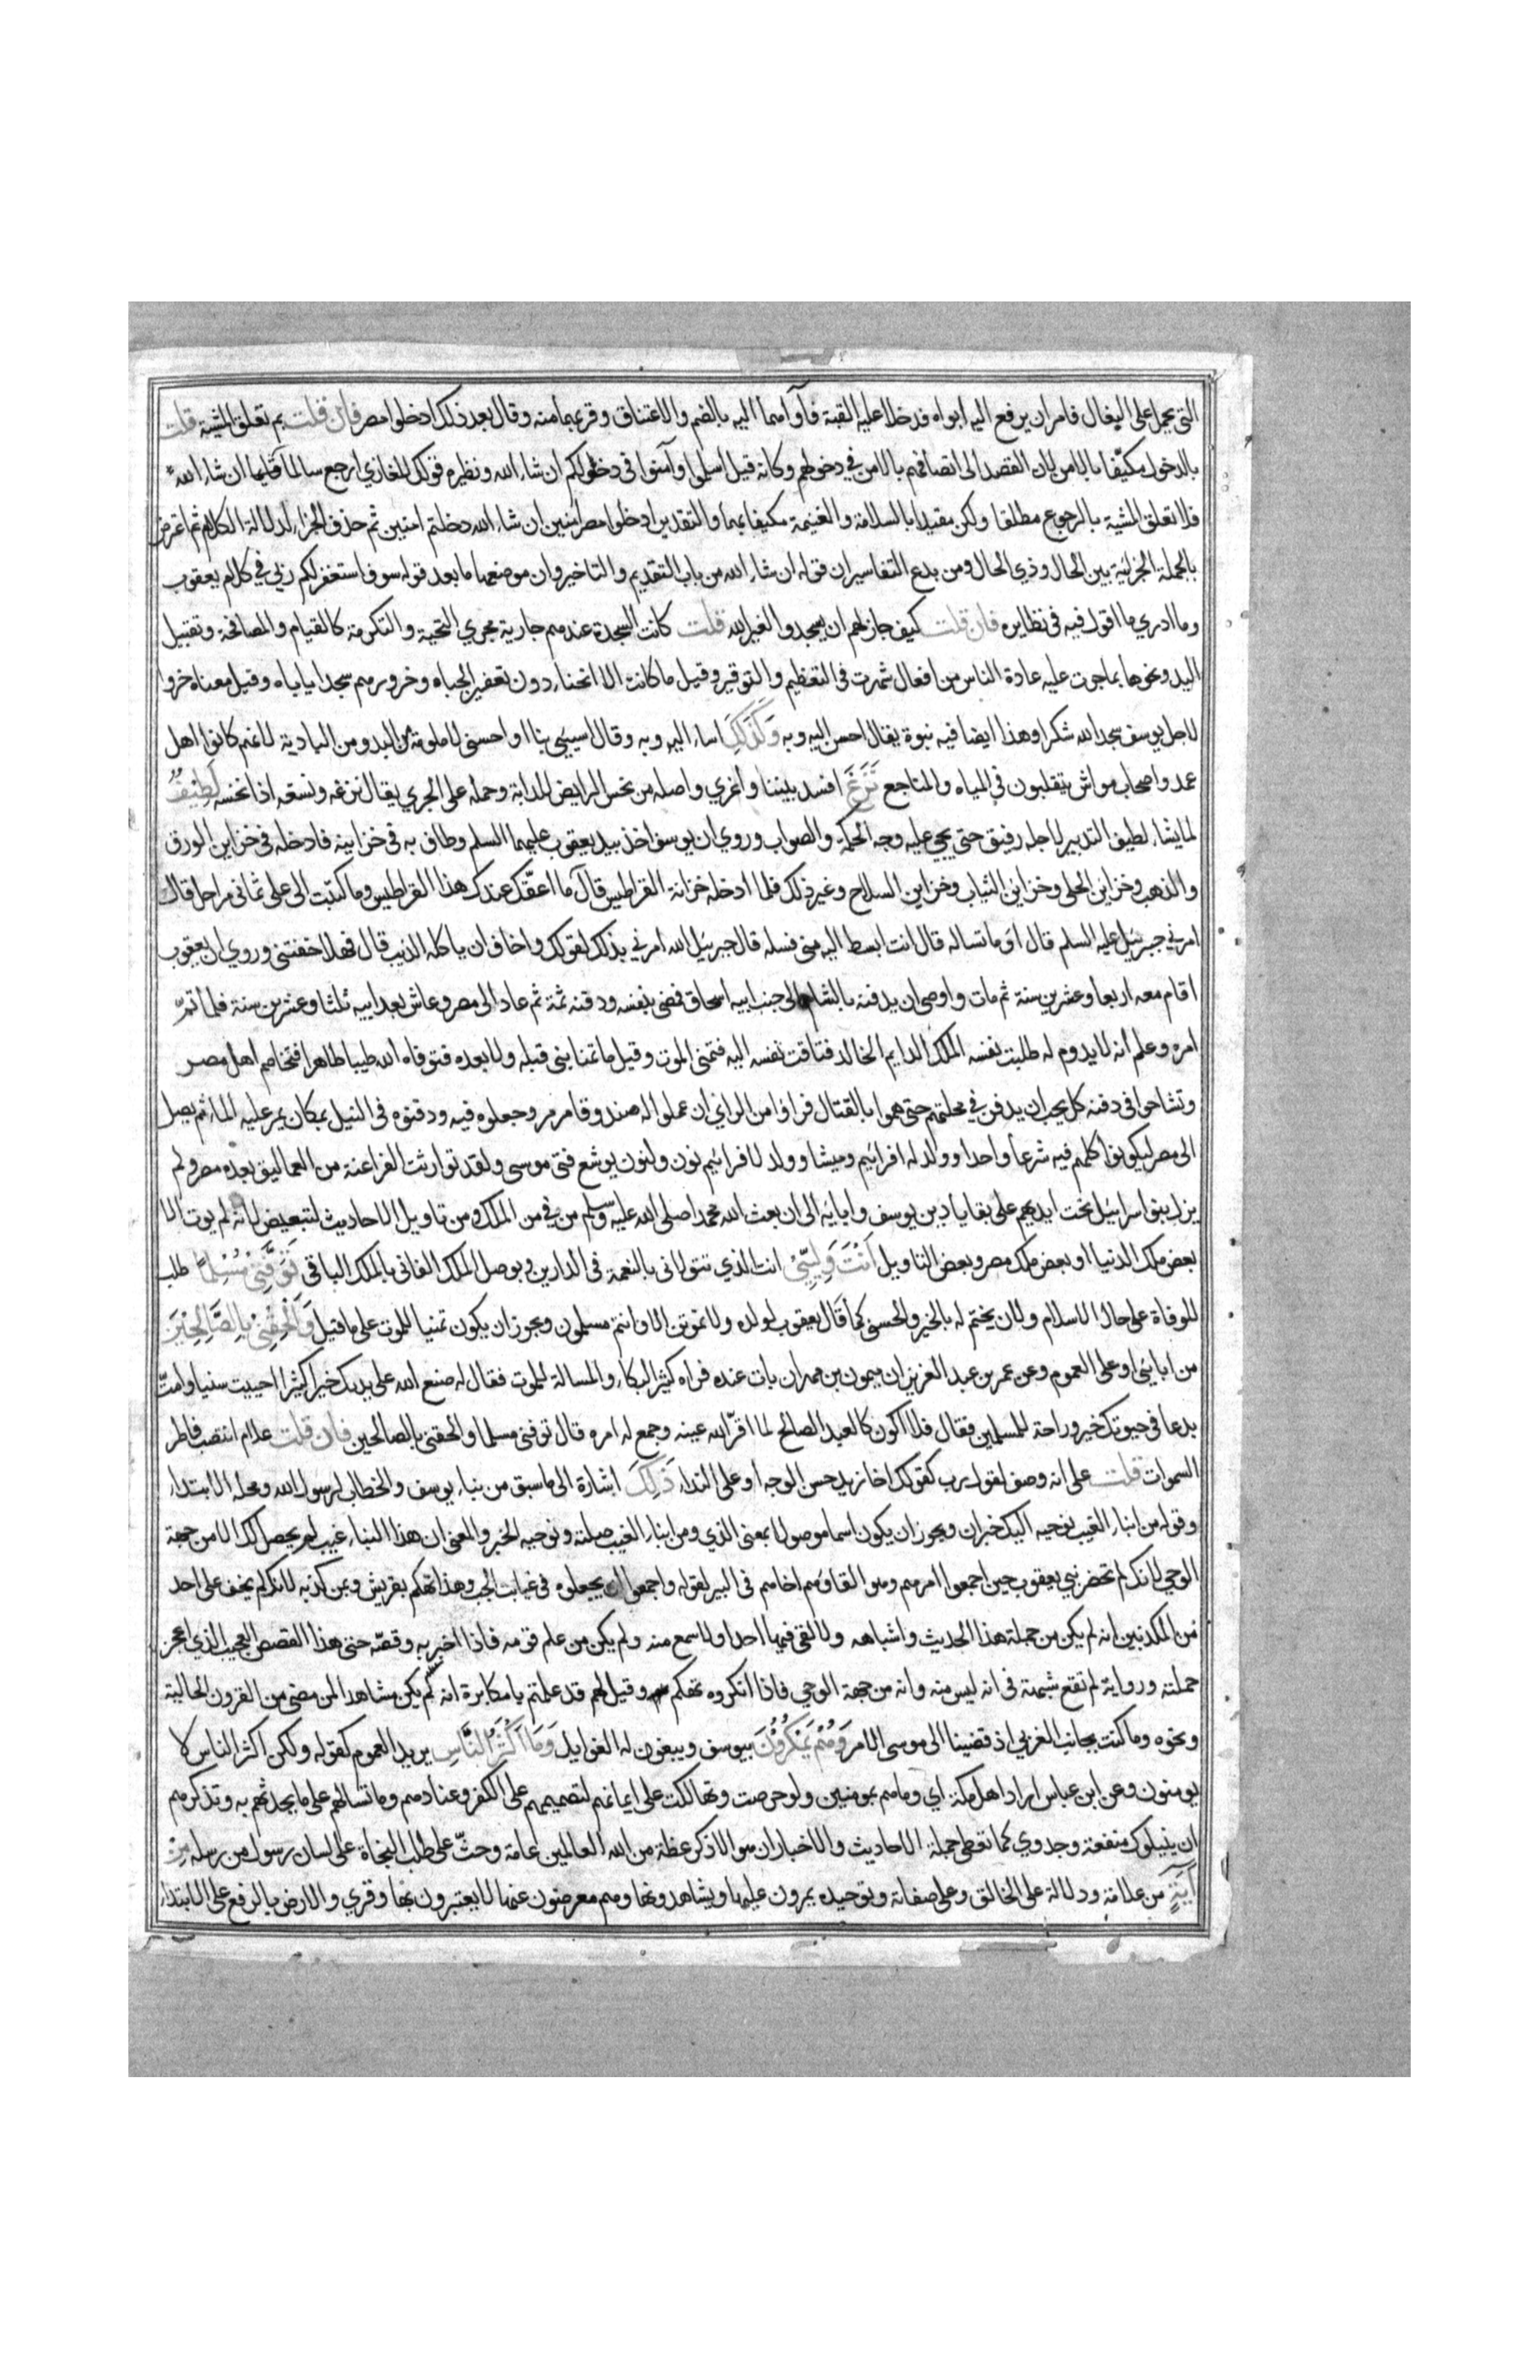 التي يحمل على البغال فامر ان يرفع اليه ابواه فدخلا عليه القبة فآواهما اليه بالضم والاعتناق وقربهما منه وقال بعد ذلك ادخلوا مصر فان قلت بم تعلق المشية قلت
بالدخول مكيّفا بالامن لان القصد الى اتصافهم بالامن في دخولهم وكانه قيل اسلموا وآمنوا في دخولكم ان شاء الله ونظيره قولك للغازي ارجع سالما غانما ان شاء الله
فلا تعلق المشية بالرجوع مطلقا ولكن مقيدا بالسلامة والغنيمة مكيفا بهما والتقدير ادخلوا مصر امنين ان شاء الله دخلتم امنين ثم حذف الجزاء لدلالة الكلام ثم اعترض
بالجملة الجزائية بين الحال وذي الحال ومن بدع التفاسير ان قوله ان شاء الله من باب التقديم والتاخير وان موضعها ما بعد قوله سوف استغفر لكم ربي في كلام يعقوب
وما ادري ما اقول فيه في نظايره فان قلت كيف جاز لهم ان يسجدوا لغير الله قلت كانت السجدة عندهم جارية مجري التحية والتكرمة كالقيام والمصافحة وتقبيل
اليد ونحوها بما جرت عليه عادة الناس من افعال شهرت في التعظيم والتوقير وقيل ما كانت الا انحناء دون تعفير الجباه وخرورهم سجدا ياباه وقيل معناه خروا
لاجل يوسف سجدا لله شكرا وهذا ايضا فيه نبوة يقال احسن اليه وبه وَكَذَلِكَ اساء اليه وبه وقال اسييي بنا او احسني لا ملومة من البدو من البادية لانهم كانوا اهل
عمد واصحاب مواش يتقلبون في المياه والمناجع نَزَغَ افسد بيننا وأغري واصله من نخس الرايض للدابة وحمله على الجري يقال نزغه ونسغه اذا نخسه لَطِيْفٌ
لمايشاء لطيف التدبير لاجله رفيق حتى يجي عليه وجه الحكمة والصواب وروي ان يوسف اخذ بيد يعقوب عليهما السلم وطاف به في خزاينه فادخله في خزاين الورق
والذهب وخزاين الحلي وخزاين الثياب وخزاين السلاح وغير ذلك فلما ادخله خزانة القراطيس قال ما اعقّك عندك هذا القراطيس وما كتبت الى على ثماني مراحل قال
امرني جبرئيل عليه السلم قال اوَ ما تساله قال انت ابسط اليه مني فسله قال جبرئيل الله امرني بذلك لقولك واخاف ان ياكله الذيب قال فهلا خفتني وروي ان يعقوب
اقام معه اربعا وعشرين سنة ثم مات واوصى ان يدفنه بالشام الى جنب ابيه اسحاق فمضى بنفسه ودفنه ثمة ثم عاد الى مصر وعاش بعد ابيه ثلثا وعشرين سنة فلما تمّ
امره وعلم أنه لا يدوم له طلبت نفسه الملك الدايم الخالد فتاقت نفسه اليه فتمنى الموت وقيل ما تمناه نبي قبله ولا بعده فتوفاه الله طيبا طاهرا فتخاصم اهل مصر
وتشاحوا في دفنه كل يحب ان يدفن في محلتهم حتى هموا بالقتال فراوا من الراي ان عملوا له صندوقا مرمر وجعلوه فيه ودفنوه في النيل بمكان يمر عليه الماء ثم يصل
الى مصر ليكونوا كلهم فيه شرعا واحدا وولد له افرائيم وميشا وولد لافرائيم نون ولنون يوشع فتى موسى ولقد توارثت الفراعنة من العماليق بعده مصر ولم
يزل بنو اسرائيل تحت ايديهم على بقايا دين يوسف وابايه الى ان بعث الله محمدا صلى الله عليه وسلم من في من الملك ومن تاويل الاحاديث لتبعيض لانه لم يوت الا
بعض ملك الدنيا او بعض ملك مصر وبعض التاويل أَنْتَ وَلِيِّيْ انت الذي تتولاني بالنعمة في الدارين ويوصل الملك الفاني بالملك الباقي تَوَفَّنِيْ مُسْلِمًا طلب
للوفاة على حال الاسلام ولان يختم له بالخير والحسنى كما قال يعقوب لولده ولا تموتن الا وانتم مسلمون ويجوز ان يكون تمنيا للموت على ما قيل وَأَلْحِقْنِيْ بِالصَّالِحِيْنَ
من اباييى او على العموم وعن عمر بن عبد العزيز ان ميمون بن مهران بات عنده فراه كثير البكاء والمسالة للموت فقال له صنع الله على يديك خيرا كثيرا احييت سننا وامتّ
بدعا في حيوتك خير وراحة للمسلمين فقال فلا اكون كالعبد الصالح لما اقرّ الله عينه وجمع له امره قال توفني مسلما والحقني بالصالحين فان قلت علام انتصب فاطر
السموات قلت على انه وصف لقول رب كقولك اخا زيد حسن الوجه او على النداء ذَلِكَ اشارة الى ما سبق من نباء يوسف والخطاب لرسول الله ومحله الابتداء
وقوله من انباء الغيب نوحيه اليك خبران ويجوز ان يكون اسما موصولا بمعنى الذي ومن انباء الغيب صلته ونوحيه الخبر والمعنى ان هذا النباء غيب لم يحصل لك الا من جهة
الوحي لانك لم تحضر بني يعقوب حين اجمعوا امرهم وهو القاؤهم اخاهم في البير لقوله واجمعوا ان يجعلوه في غيابت الجب وهذا تهكم بقريش وبمن كذبه لانه لم يخف على احد
من المكذبين انه لم يكن من جملة هذا الحديث واشباهه ولا لقي فيها احدا ولا سمع منه ولم يكن من علم قومه فاذا اخبر به وقصّه حتى هذا القصص العجيب الذي اعجز
حملته ورواية لم تقع شبهة في انه ليس منه وانه من جهة الوحي فاذا انكروه تهكم بهم وقيل لهم قد علمتم يا مكابرة انه لم يكن مشاهدا لمن مضى من القرون الخالية
ونحوه وما كنت بجانب الغربي اذ قضينا الى موسى الامر وَهُمْ يَمْكُرُوْنَ بيوسف ويبغون له الغوايل وَمَا أَكْثَرُ النَّاسِ يريد العموم كقوله ولكن اكثر الناس لا
يومنون وعن ابن عباس اراد اهل مكة اي وما هم بمومنين ولو حرصت وتهالكت على ايمانهم لتصميمهم على الكفر وعنادهم وما تسالهم على ما يحدثهم به وتذكرهم
ان ينيلوك منفعة وجدوي كما تعطى حملة الاحاديث والاخبار ان هو الا ذكر عظة من الله للعالمين عامة وحثّ على طلب النجاة على لسان رسول من رسله مِنْ
آيَةٍ من علامة ودلالة على الخالق وعلى صفاته وتوحيده يمرون عليها ويشاهدونها وهم معرضون عنها لا يعتبرون بها وقري والارض بالرفع على الابتداء